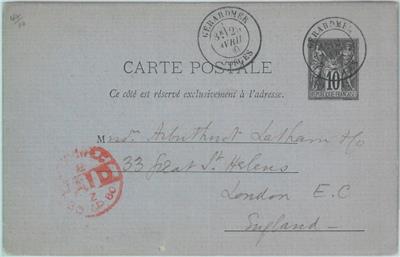 GÉRARDMER
AVRIL
VOSGES
GÉRARDMER
10
CARTE POSTALE
Ce côté est réservé exclusivement à l'adresse.
Mess. Arbuthnot Latham & Co
33 Great St Helens
London E.C
England
PAID
80